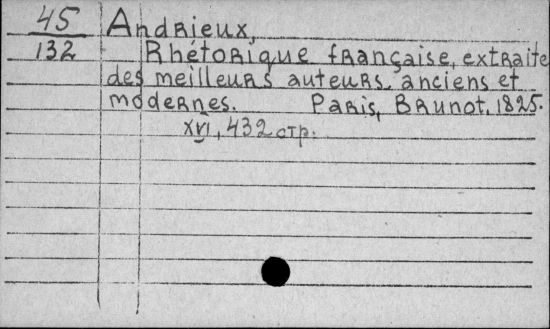 45
132
Andrieux,
Rhétorique française, extraite
des meilleurs auteurs anciens et
modernes. Paris, Brunot, 1825.
XVI, 432 стр.